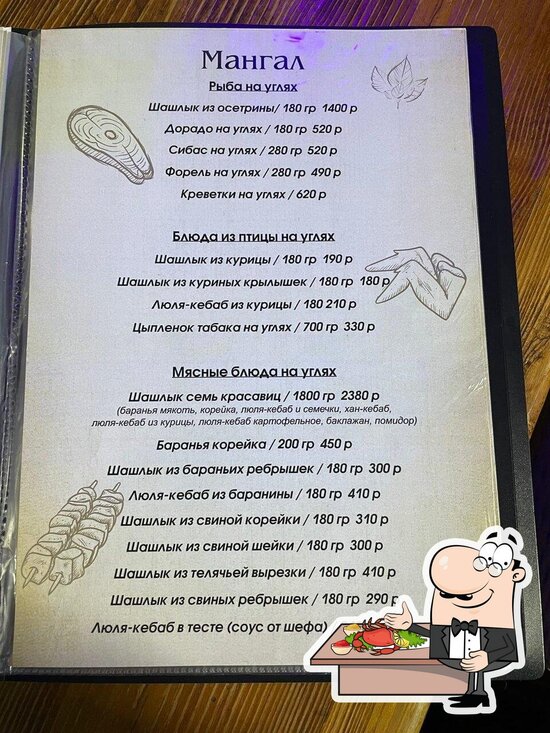 Мангал
Рыба на углях
Шашлык из осетрины/ 180 гр 1400 р
Дорадо на углях / 180 гр 520 р
Сибас на углях / 280 гр 520 р
Форель на углях / 280 гр 490 р
Креветки на углях / 620 р
Блюда из птицы на углях
Шашлык из курицы / 180 гр 190 р
Шашлык из куриных крылышек / 180 гр 180 р
Люля-кебаб из курицы / 180 210 р
Цыпленок табака на углях / 700 гр 330 р
Мясные блюда на углях
Шашлык семь красавиц / 1800 гр 2380 р
(баранья мякоть, корейка, люля-кебаб и семечки, хан-кебаб,
люля-кебаб из курицы, люля-кебаб картофельное, баклажан, помидор)
Баранья корейка / 200 гр 450 р
Шашлык из бараньих ребрышек / 180 гр 300 р
Люля-кебаб из баранины / 180 гр 410 р
Шашлык из свиной корейки / 180 гр 310 р
Шашлык из свиной шейки / 180 гр 300 р
Шашлык из телячьей вырезки / 180 гр 410 р
Шашлык из свиных ребрышек / 180 гр 290 р
Люля-кебаб в тесте (соус от шефа)